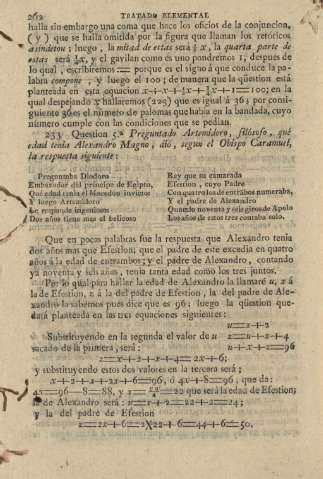 262 TRATADO ELEMENTAL
halla sin embargo una coma que hace los oficios de la conjuncion,
(y) que se halla omitida por la figura que llaman los retóricos
asindeton; luego, la mitad de estas será ½ x, la quarta parte de
estas será ¼x, y el gavilan como es uno pondremos 1, despues de
lo qual, escribirémos = porque es el signo á que conduce la pa-
labra compone, y luego el 100; de manera que la qüestion está
planteada en esta equacion x+x+½x+¼x+1=100; en la
qual despejando x hallaremos (229) que es igual á 36; por consi-
guiente 36 es el número de palomas que habia en la bandada, cuyo
número cumple con las condiciones que se pedian.
233 Question 5.ª Preguntado Artemidoro, filósofo, qué
edad tenia Alexandro Magno, dió, segun el Obispo Caramuel,
la respuesta siguiente:
Preguntaba Diodoro
Embaxador del príncipe de Egipto,
Qué edad tenia el Macedon invicto?
Y luego Artemidoro
Le responde ingenioso:
Dos años tiene mas el belicoso
Rey que su camarada
Efestion, cuyo Padre
Contaba quatro los de entrambos numeraba,
Y el padre de Alexandro
Quando noventa y seis giros de Apolo
Los años de estos tres contaba solo.
Que en pocas palabras fue la respuesta que Alexandro tenia
dos años mas que Efestion; que el padre de este excedia en quatro
años á la edad de entrambos; y el padre de Alexandro, contando
ya noventa y seis años, tenia tanta edad como los tres juntos.
Por lo qual para hallar la edad de Alexandro la llamaré u, x á
la de Efestion, z á la del padre de Efestion, la del padre de Ale-
xandro la sabemos pues dice que es 96; luego la qüestion que-
dará planteada en las tres equaciones siguientes:
u=x+2
Substituyendo en la segunda el valor de u z=u+x+4
sacado de la primera, será: u+x+z=96
z=x+2+x+4=2x+6;
y substituyendo estos dos valores en la tercera será;
x+2+x+2x+6=96, ó 4x+8=96, que da:
4x=96-8=88, y x=88/4=22 que será la edad de Efestion;
la de Alexandro será: u=x+2=22+2=24;
y la del padre de Efestion
z=2x+6=2X22+6=44+6=50.